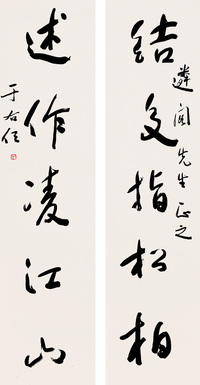 结交指松柏
遴闻先生正之
述作凌江山
于右任